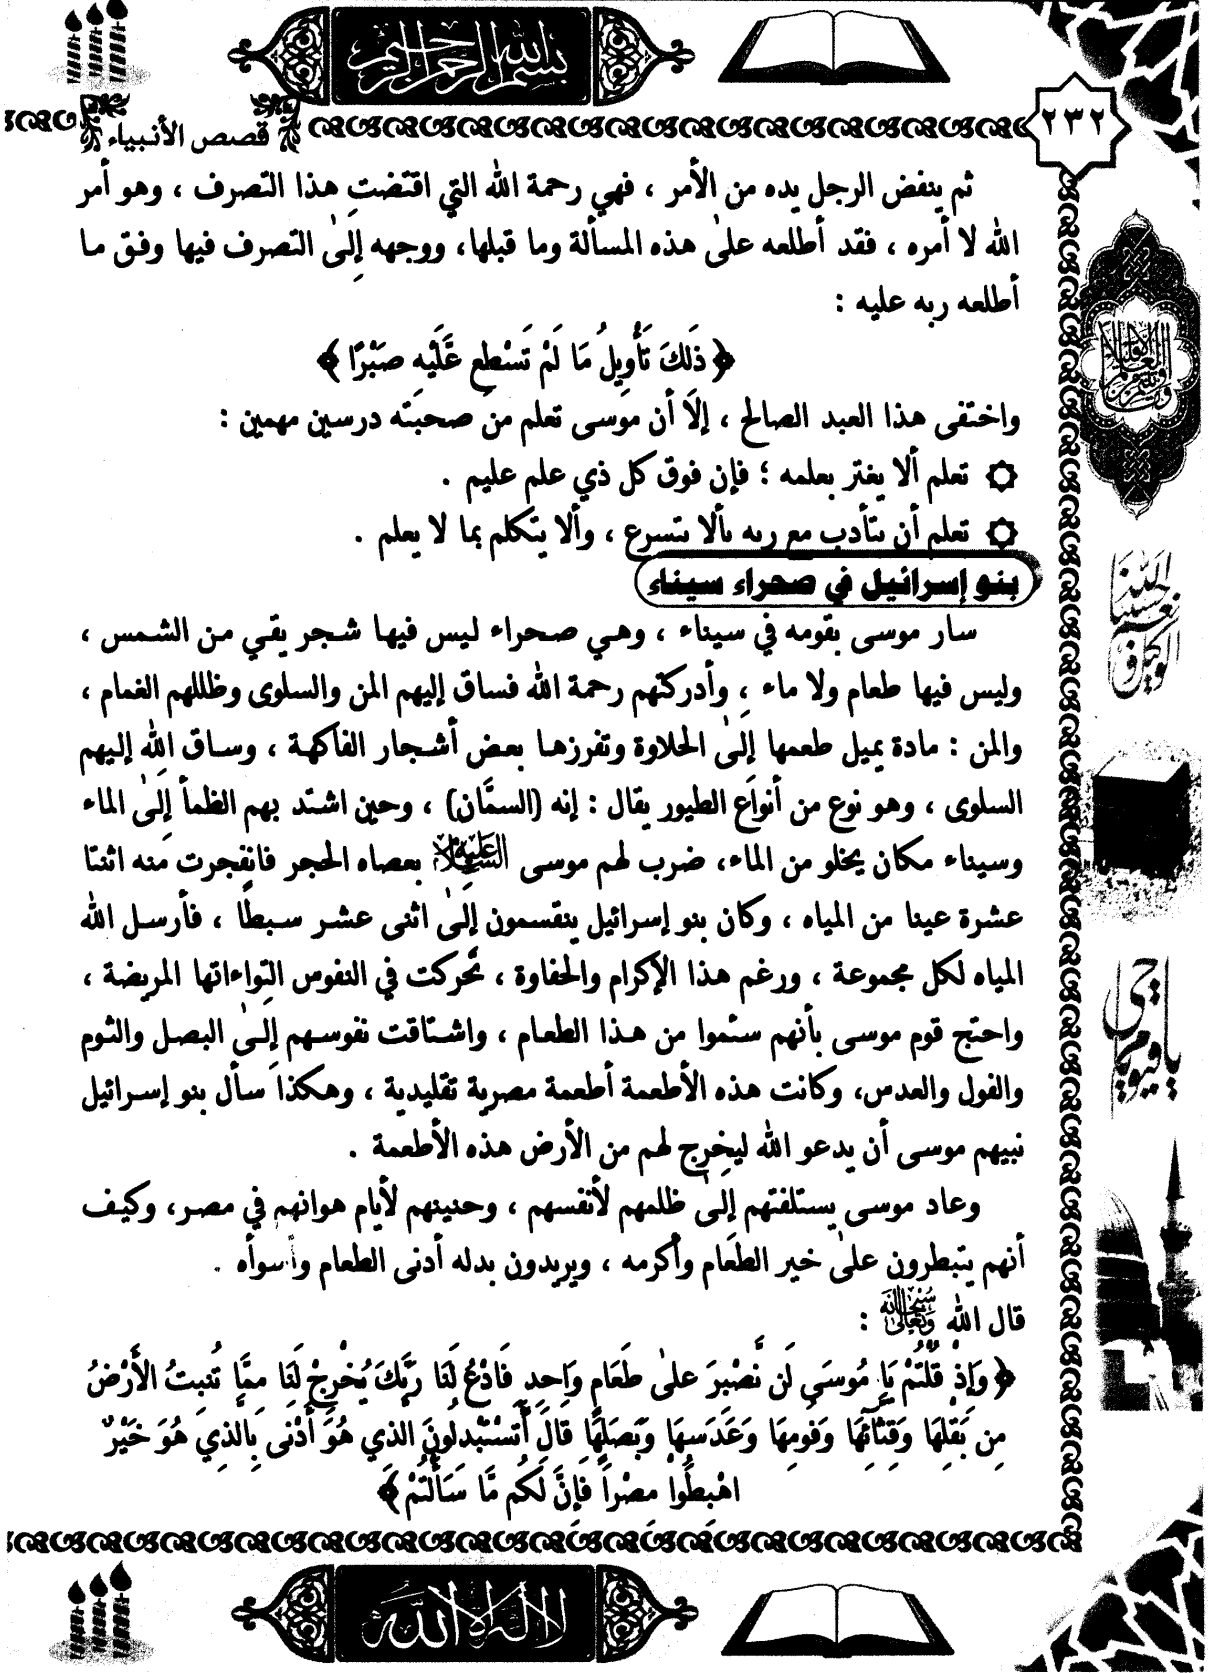 بسم الله الرحمن الرحيم
٢٣٢
قصص الأنبياء
ثم ينفض الرجل يده من الأمر ، فهي رحمة الله التي اقتضت هذا التصرف ، وهو أمر
الله لا أمره ، فقد أطلعه علىٰ هذه المسألة وما قبلها، ووجهه إلىٰ التصرف فيها وفق ما
أطلعه ربه عليه :
﴿ ذَلكَ تَأْوِيلُ مَا لَمْ تَسْطِع عَّلَيْهِ صَبْرًا ﴾
واختفى هذا العبد الصالح ، إلَّا أن موسى تعلم من صحبته درسين مهمين :
۞ تعلم ألا يغتر بعلمه ؛ فإن فوق كل ذي علم عليم .
۞ تعلم أن يتأدب مع ربه بألا يتسرع ، وألا يتكلم بما لا يعلم .
بنو إسرائيل في صحراء سيناء
سار موسى بقومه في سيناء ، وهي صحراء ليس فيها شجر يقي من الشمس ،
وليس فيها طعام ولا ماء ، وأدركتهم رحمة الله فساق إليهم المن والسلوى وظللهم الغمام ،
والمن : مادة يميل طعمها إلىٰ الحلاوة وتفرزها بعض أشجار الفاكهة ، وساق الله إليهم
السلوى ، وهو نوع من أنواع الطيور يقال : إنه (السمَّان) ، وحين اشتد بهم الظمأ إلىٰ الماء
وسيناء مكان يخلو من الماء، ضرب لهم موسى عليه السلام بعصاه الحجر فانفجرت منه اثنتا
عشرة عينا من المياه ، وكان بنو إسرائيل ينقسمون إلىٰ اثنى عشر سبطًا ، فأرسل الله
المياه لكل مجموعة ، ورغم هذا الإكرام والحفاوة ، تحركت في النفوس التواءاتها المريضة ،
واحتج قوم موسى بأنهم سئموا من هذا الطعام ، واشتاقت نفوسهم إلىٰ البصل والثوم
والفول والعدس، وكانت هذه الأطعمة أطعمة مصرية تقليدية ، وهكذا سأل بنو إسرائيل
نبيهم موسى أن يدعو الله ليخرج لهم من الأرض هذه الأطعمة .
وعاد موسى يستلفتهم إلىٰ ظلمهم لأنفسهم ، وحنينهم لأيام هوانهم في مصر، وكيف
أنهم يتبطرون علىٰ خير الطعام وأكرمه ، ويريدون بدله أدنى الطعام وأسوأه .
قال الله سبحانه وتعالى :
﴿ وَإِذْ قُلْتُمْ يَا مُوسَى لَن نَّصْبِرَ علىٰ طَعَامٍ وَاحِدٍ فَادْعُ لَنَا رَبَّكَ يُخْرِجْ لَنَا مِمَّا تُنبِتُ الأَرْضُ
مِن بَقْلِهَا وَقِثَّائِهَا وَفُومِهَا وَعَدَسِهَا وَبَصَلِهَا قَالَ أَتَسْتَبْدِلُونَ الذي هُوَ أَدْنَى بِالذِي هُوَ خَيْرٌ
اهْبِطُواْ مِصْراً فَإِنَّ لَكُم مَّا سَأَلْتُمْ ﴾
حسبنا الله ونعم الوكيل
يا حي يا قيوم
لا إله إلا الله